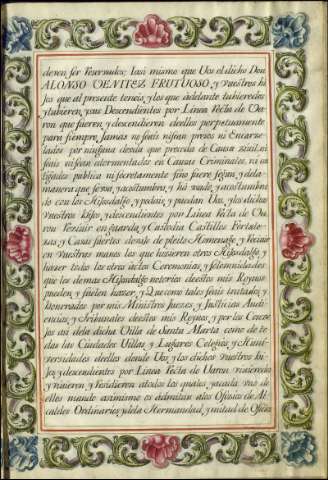 deven ser Reservados; lasi mismo que Vos el dicho Don
ALONSO BENITEZ FRUTUOSO, y Vuestros hi
jos que al presente teneis, y los que adelante tubieredes
y tubieren, y sus Descendientes por Linea Recta de Va-
ron que fueren, y descendieren dellos perpetuamente
para siempre Jamas no seais ni sean presos ni Encarse-
lados por ninguna deuda que proceda de Causa zivil ni
seais ni sean atormentados en Causas Criminales, ni cas
tigados publica ni secretamente sino fuere segun, y dela-
manera que se usa, y acostumbra, y há usado, y acostumbra
do con los Hijosdalgo, y podais, y puedan Vos, y los dichos
Vuestros hijos, y descendientes por Linea Recta de Va-
ron Reziuir en guarda, y Custodia Castillos Fortale-
zas, y Casas fuertes devajo de pleito Homenage, y Reciuir
en Vuestras manos los que hizieren otros Hijosdalgo, y
hazer todos los otros actos Ceremonias, y solemnidades
que los demas Hijosdalgo notorios destos mis Reynos
pueden, y suelen hazer, y Que como tales seais tratados, y
honorados por mis Ministros Juezes, y Justicias Audi-
encias, y Tribunales destos mis Reynos, y por los Conce-
jos asi dela dicha Villa de Santa Marta como de to-
das las Ciudades Villas, y Lugares Colegios, y Huni-
versidades dellos donde Vos, y los dichos Vuestros hi-
jos, y descendientes por Linea Recta de Varon viuieredes
y viuieren, y Residieren atodos los quales, y acada vno de
ellos mando asimismo os admitan alos Oficios de Al-
caldes Ordinarios, y dela Hermandad, y mitad de Oficios